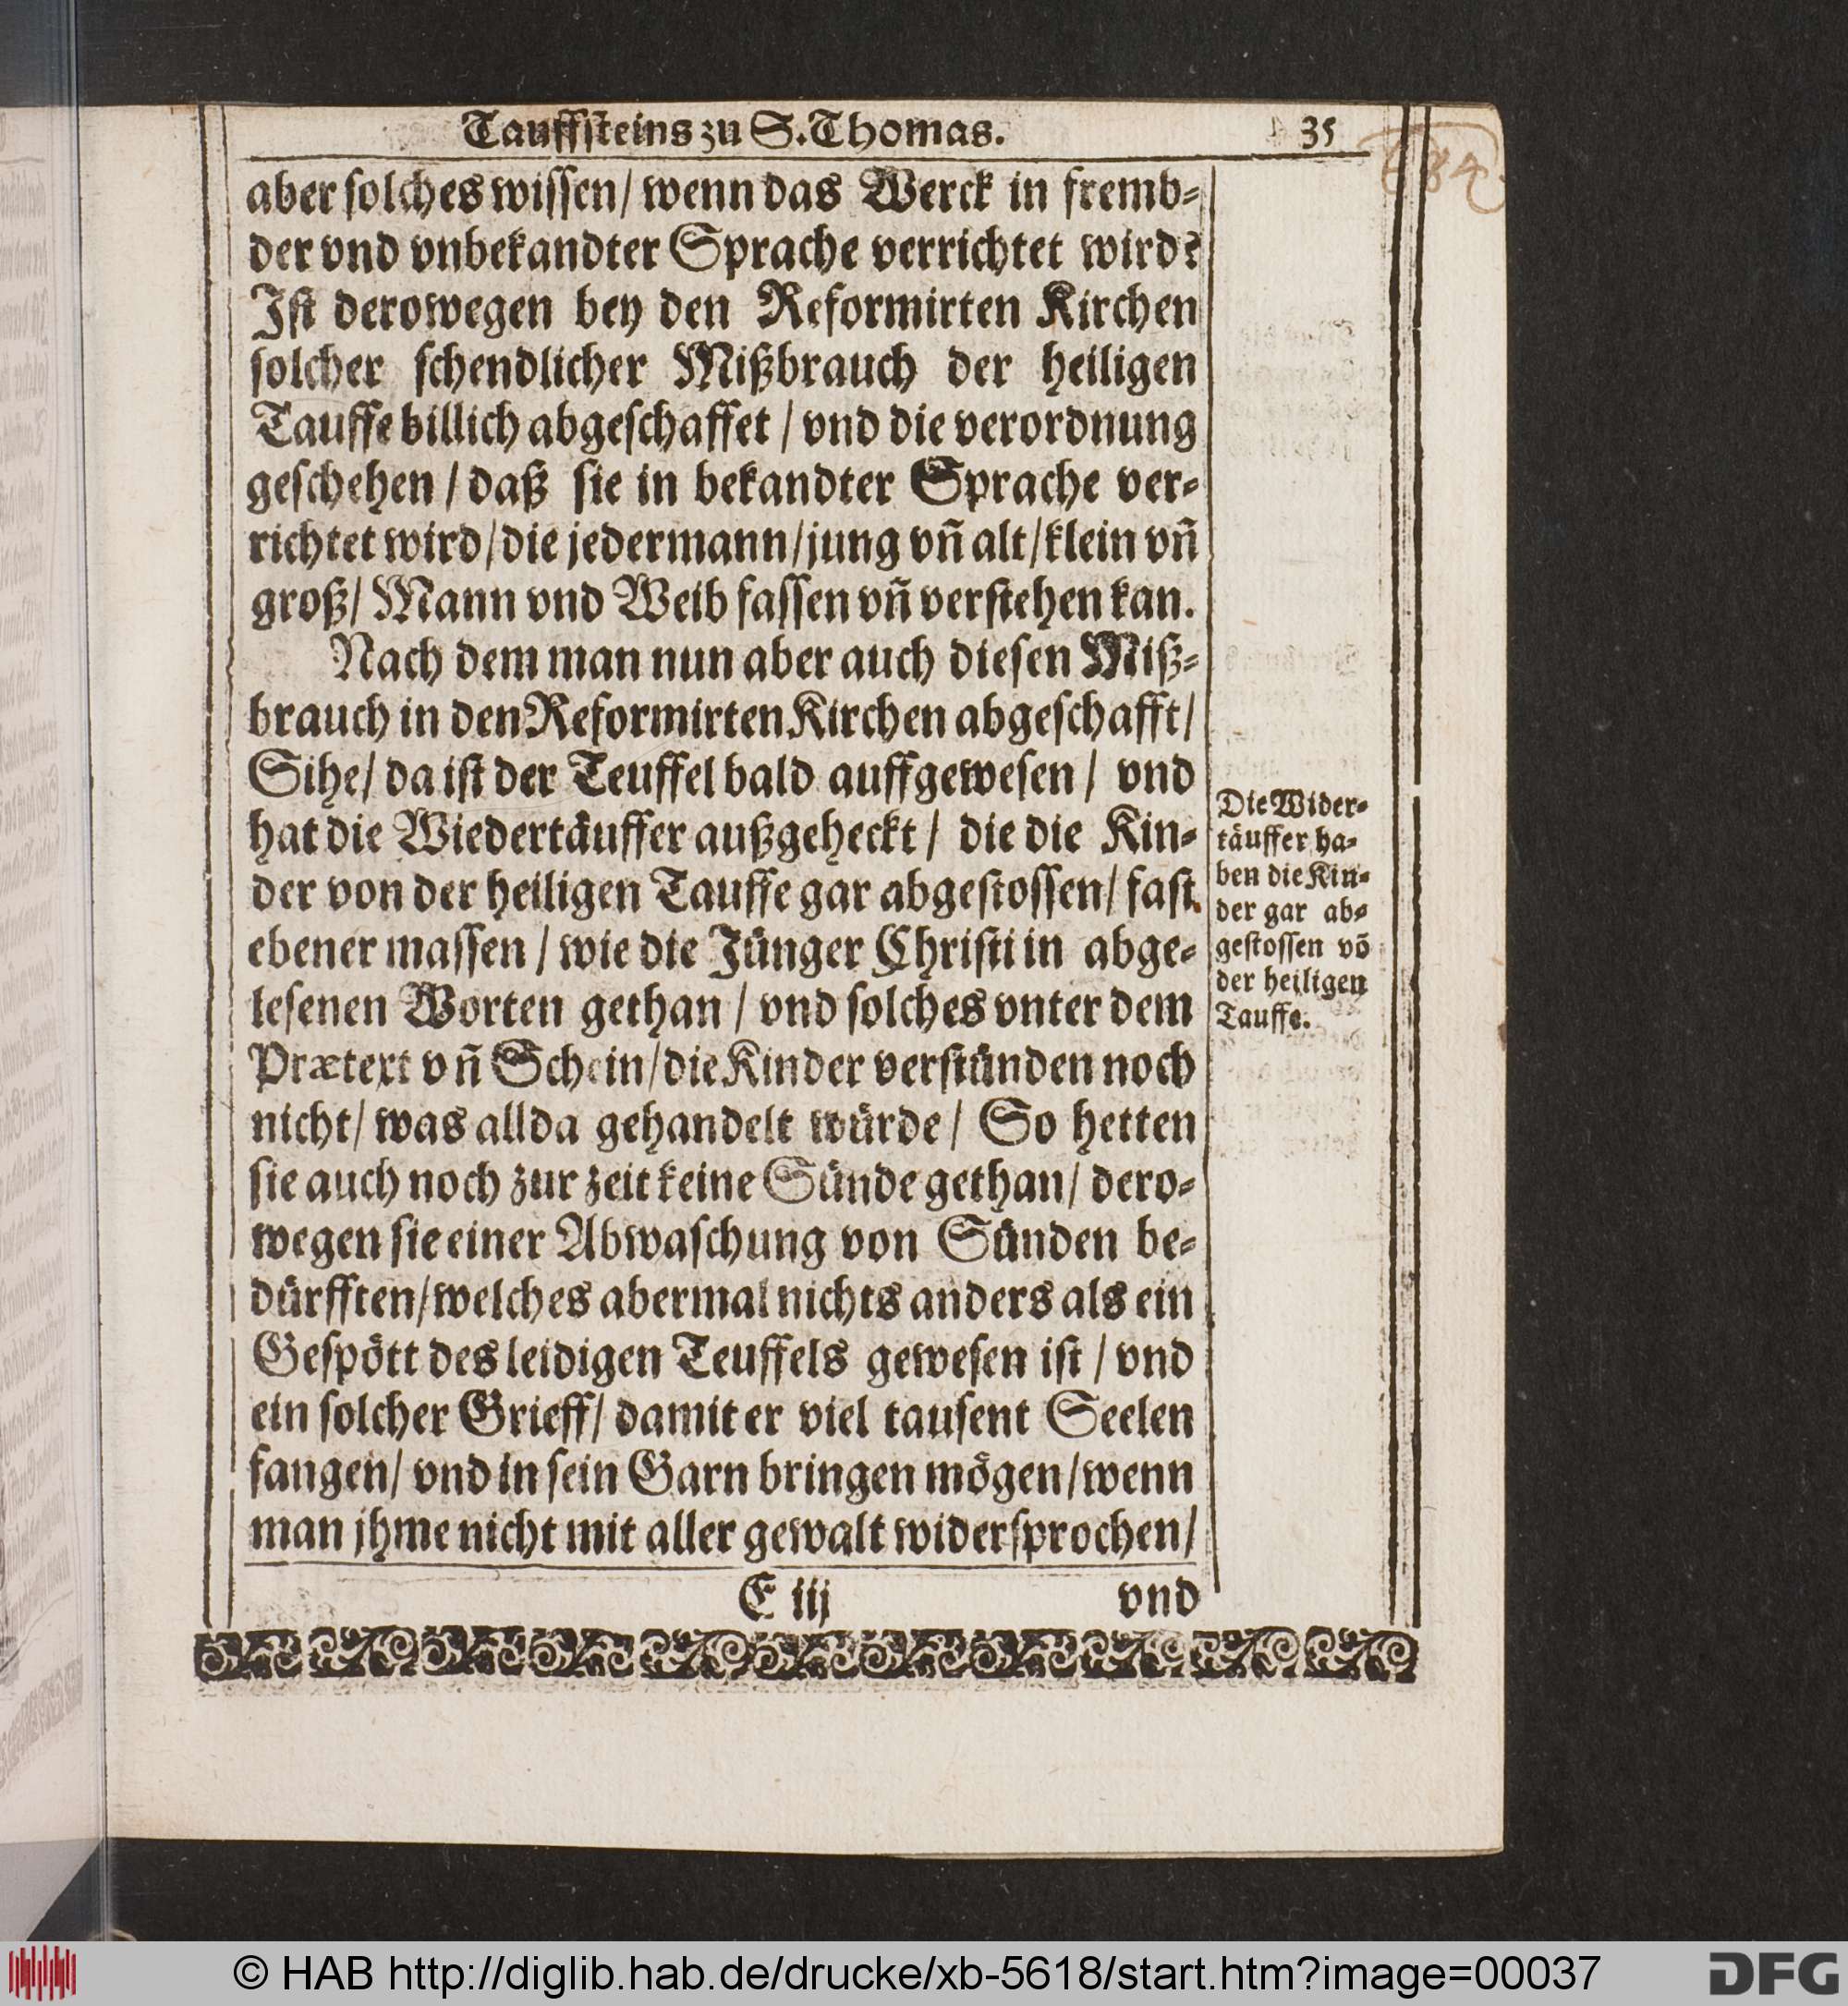 Tauffsteins zu S. Thomas. 35
aber solches wissen / wenn das Werck in fremb-
der vnd vnbekandter Sprache verrichtet wird?
Ist derowegen bey den Reformirten Kirchen
solcher schendlicher Mißbrauch der heiligen
Tauffe billich abgeschaffet / vnd die verordnung
geschehen / daß sie in bekandter Sprache ver-
richtet wird / die jedermann / jung vñ alt / klein vñ
groß / Mann vnd Weib fassen vñ verstehen kan.
Nach dem man nun aber auch diesen Miß-
brauch in den Reformirten Kirchen abgeschafft /
Sihe / da ist der Teuffel bald auffgewesen / vnd
hat die Wiedertäuffer außgeheckt / die die Kin-
der von der heiligen Tauffe gar abgestossen / fast
ebener massen / wie die Jünger Christi in abge-
lesenen Worten gethan / vnd solches vnter dem
Prætext vñ Schein / die Kinder verstünden noch
nicht / was allda gehandelt würde / So hetten
sie auch noch zur zeit keine Sünde gethan / dero-
wegen sie einer Abwaschung von Sünden be-
dürfften / welches abermal nichts anders als ein
Gespött des leidigen Teuffels gewesen ist / vnd
ein solcher Grieff / damit er viel tausent Seelen
fangen / vnd in sein Garn bringen mögen / wenn
man jhme nicht mit aller gewalt widersprochen /
E iij vnd
Die Wider-
täuffer ha-
ben die Kin-
der gar ab-
gestossen võ
der heiligen
Tauffe.
© HAB http://diglib.hab.de/drucke/xb-5618/start.htm?image=00037
DFG